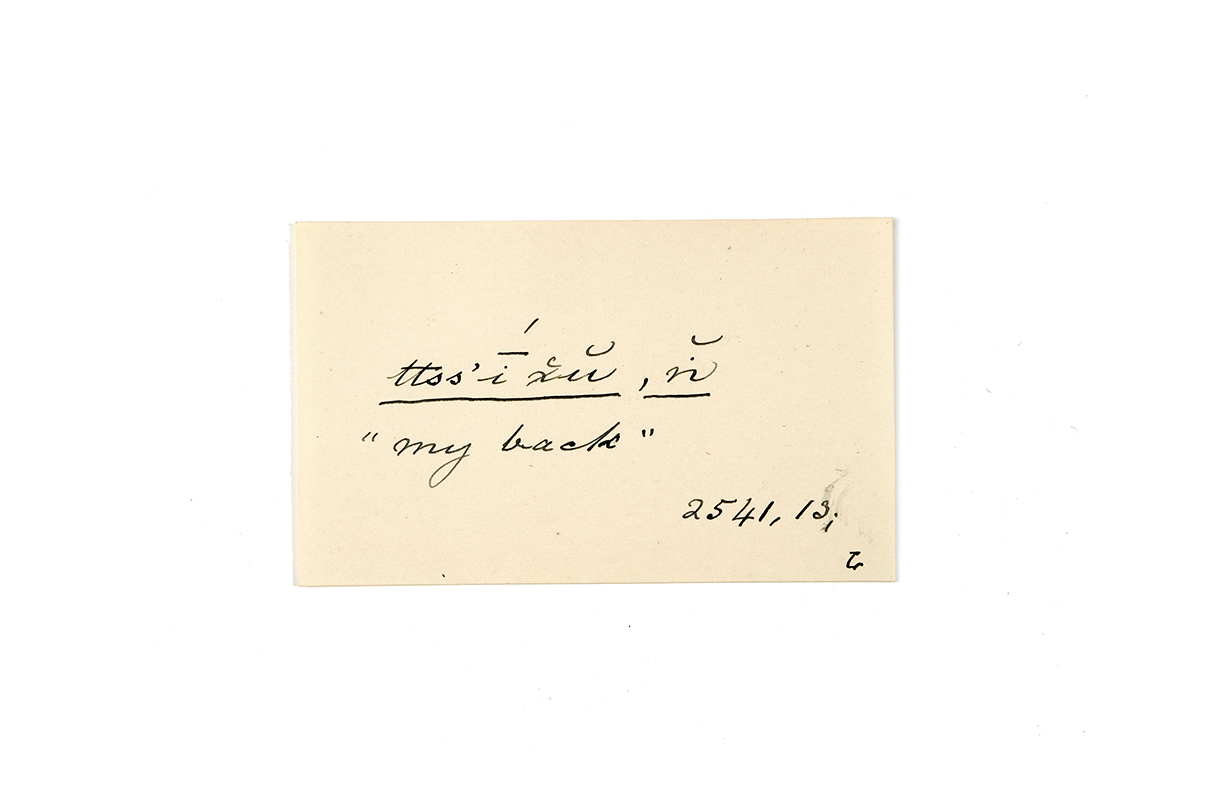 ttss’ī́žŭ, ṅ̆
"my back"
2541, 13;